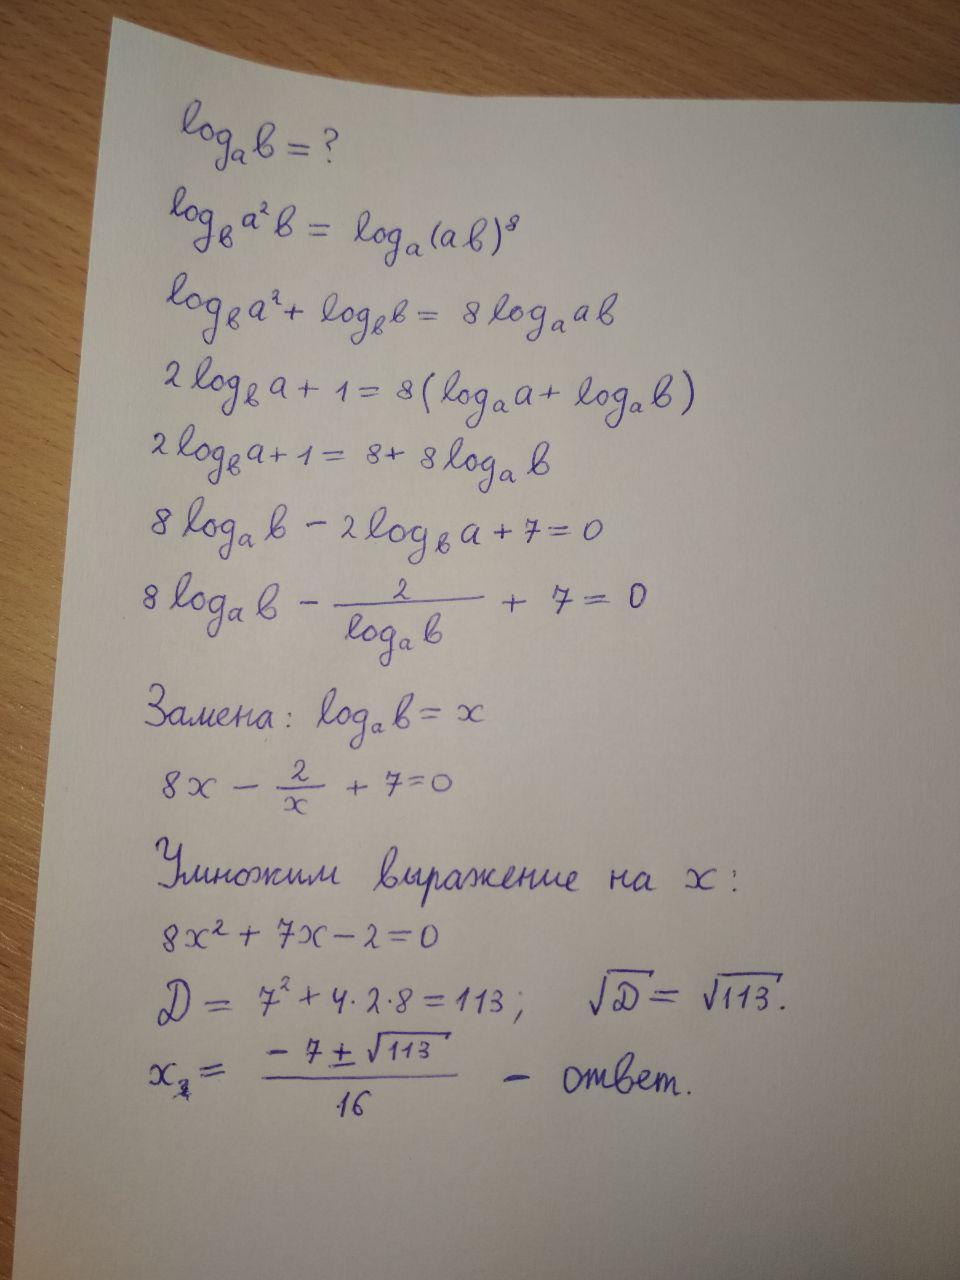 logₐ в = ?
log_в a²в = logₐ(aв)⁸
log_в a² + log_в в = 8 logₐ aв
2 log_в a + 1 = 8(logₐ a + logₐ в)
2 log_в a + 1 = 8 + 8 logₐ в
8 logₐ в - 2 log_в a + 7 = 0
8 logₐ в - 2/(logₐ в) + 7 = 0
Замена: logₐ в = x
8x - 2/x + 7 = 0
Умножим выражение на x:
8x² + 7x - 2 = 0
D = 7² + 4·2·8 = 113; √D = √113.
x = (-7 ± √113)/16 - ответ.